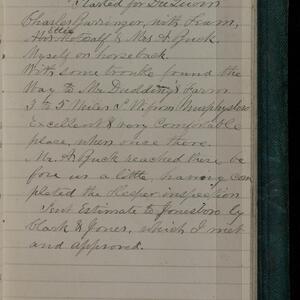 Started for DuQuoin
Charles Barringer, with Team,
Ettie
Mrs. & Mrs A. Buck.
Myself on horseback.
With some trouble found the
Way to Mr Dudding's Farm
3 to 5 Miles S.W. from Murphysboro
Excellent & very Comfortable
place, when once there.
Mr. A. Buck reached there be
fore us a little, having com
pleted the Hesper inspection
Sent Estimate to Jonesboro by
Clark & Jones, which I met
and approved.